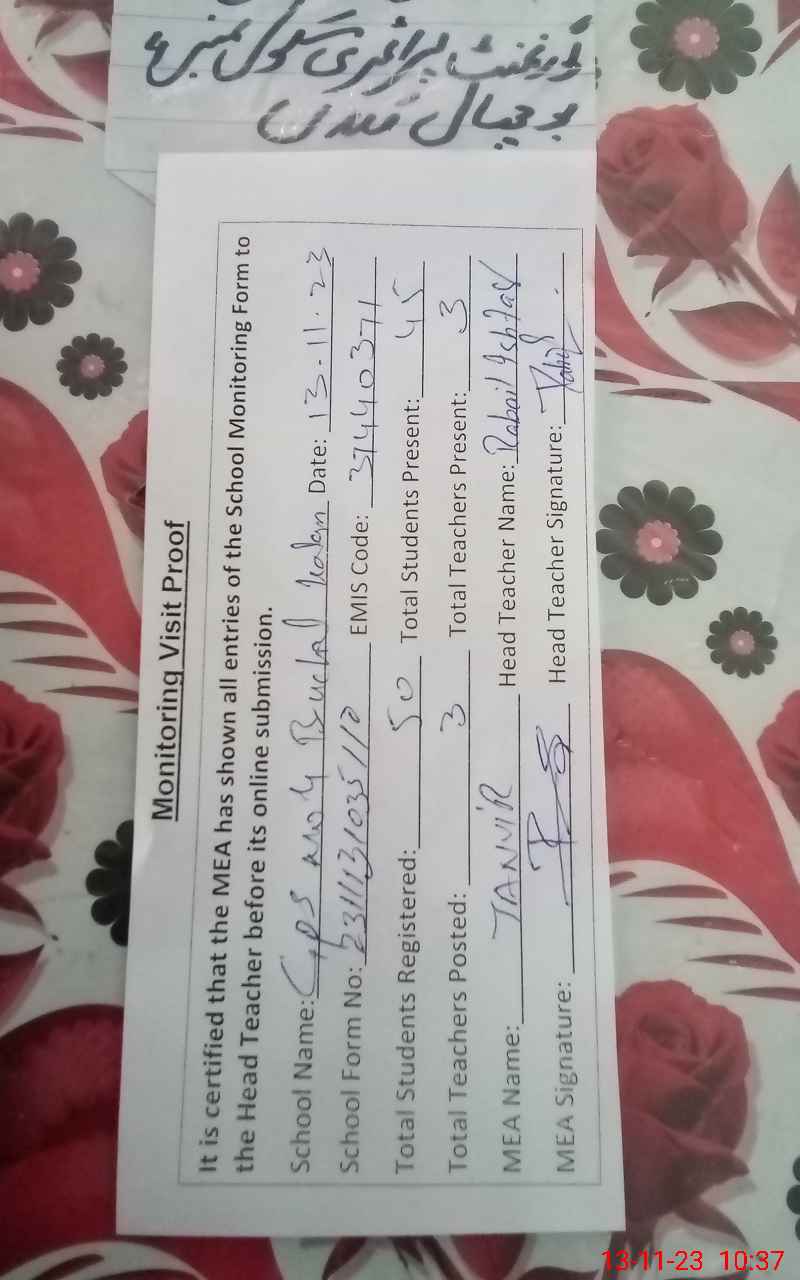 گورنمنٹ پرائمری سکول نمبر 4
بوچھال کلاں
Monitoring Visit Proof
It is certified that the MEA has shown all entries of the School Monitoring Form to
the Head Teacher before its online submission.
School Name: GPS No 4 Buchal Date: 13.11.23
School Form No: EMIS Code: 37440371
Total Students Registered: 50 Total Students Present: 45
Total Teachers Posted: 3 Total Teachers Present: 3
MEA Name: TANVIR Head Teacher Name: Rabail Ishfaq
MEA Signature: Head Teacher Signature:
13-11-23 10:37